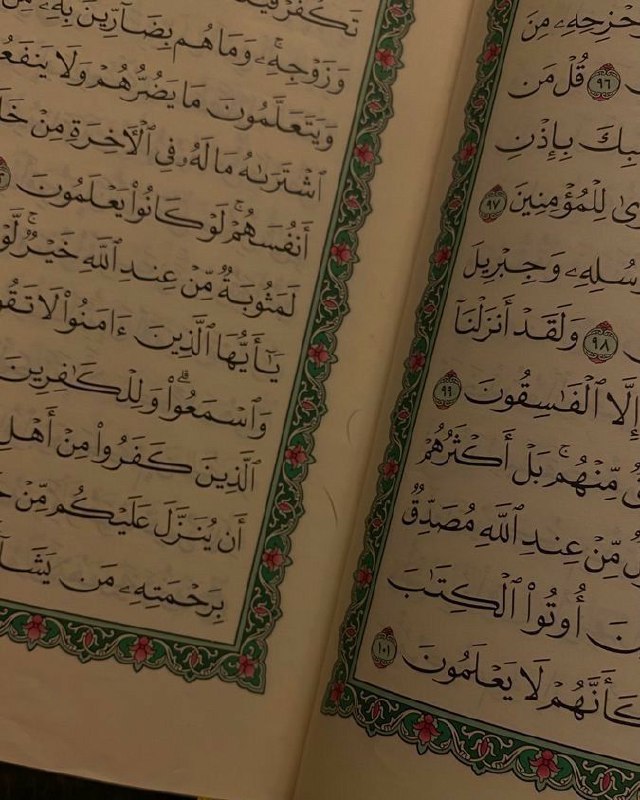 زَحْزِحِهِۦ مِنَ
٩٦ قُلْ مَن
بِإِذْنِ
لِلْمُؤْمِنِينَ ٩٧
وَجِبْرِيلَ
٩٨ وَلَقَدْ أَنزَلْنَآ
إِلَّا ٱلْفَـٰسِقُونَ ٩٩
مِّنْهُم ۚ بَلْ أَكْثَرُهُمْ
مِّنْ عِندِ ٱللَّهِ مُصَدِّقٌ
أُوتُوا۟ ٱلْكِتَـٰبَ
كَأَنَّهُمْ لَا يَعْلَمُونَ ١٠١
تَكْفُرْ
وَزَوْجِهِۦ ۚ وَمَا هُم بِضَآرِّينَ بِهِۦ
وَيَتَعَلَّمُونَ مَا يَضُرُّهُمْ وَلَا يَنفَعُ
ٱشْتَرَىٰهُ مَا لَهُۥ فِى ٱلْـَٔاخِرَةِ مِنْ
أَنفُسَهُمْ ۚ لَوْ كَانُوا۟ يَعْلَمُونَ
لَمَثُوبَةٌ مِّنْ عِندِ ٱللَّهِ خَيْرٌ ۖ لَّوْ
يَـٰٓأَيُّهَا ٱلَّذِينَ ءَامَنُوا۟ لَا
وَٱسْمَعُوا۟ ۗ وَلِلْكَـٰفِرِينَ
ٱلَّذِينَ كَفَرُوا۟ مِنْ أَهْلِ
أَن يُنَزَّلَ عَلَيْكُم مِّنْ
بِرَحْمَتِهِۦ مَن يَشَآ